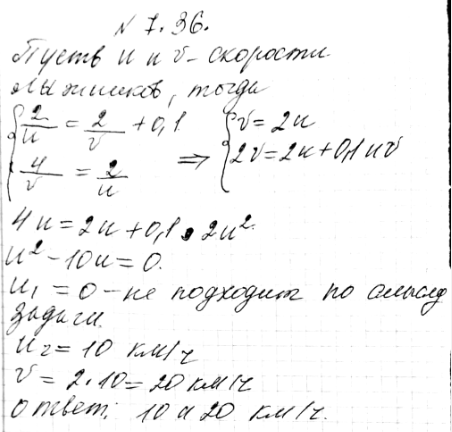 № 7.36.
Пусть u и v - скорости
лыжников, тогда
{ 2/u = 2/v + 0,1 ⇒ { v = 2u
{ 4/v = 2/u { 2v = 2u + 0,1uv
4u = 2u + 0,1 • 2u².
u² - 10u = 0.
u₁ = 0 - не подходит по смыслу
задачи.
u₂ = 10 км/ч
v = 2 · 10 = 20 км/ч
Ответ: 10 и 20 км/ч.